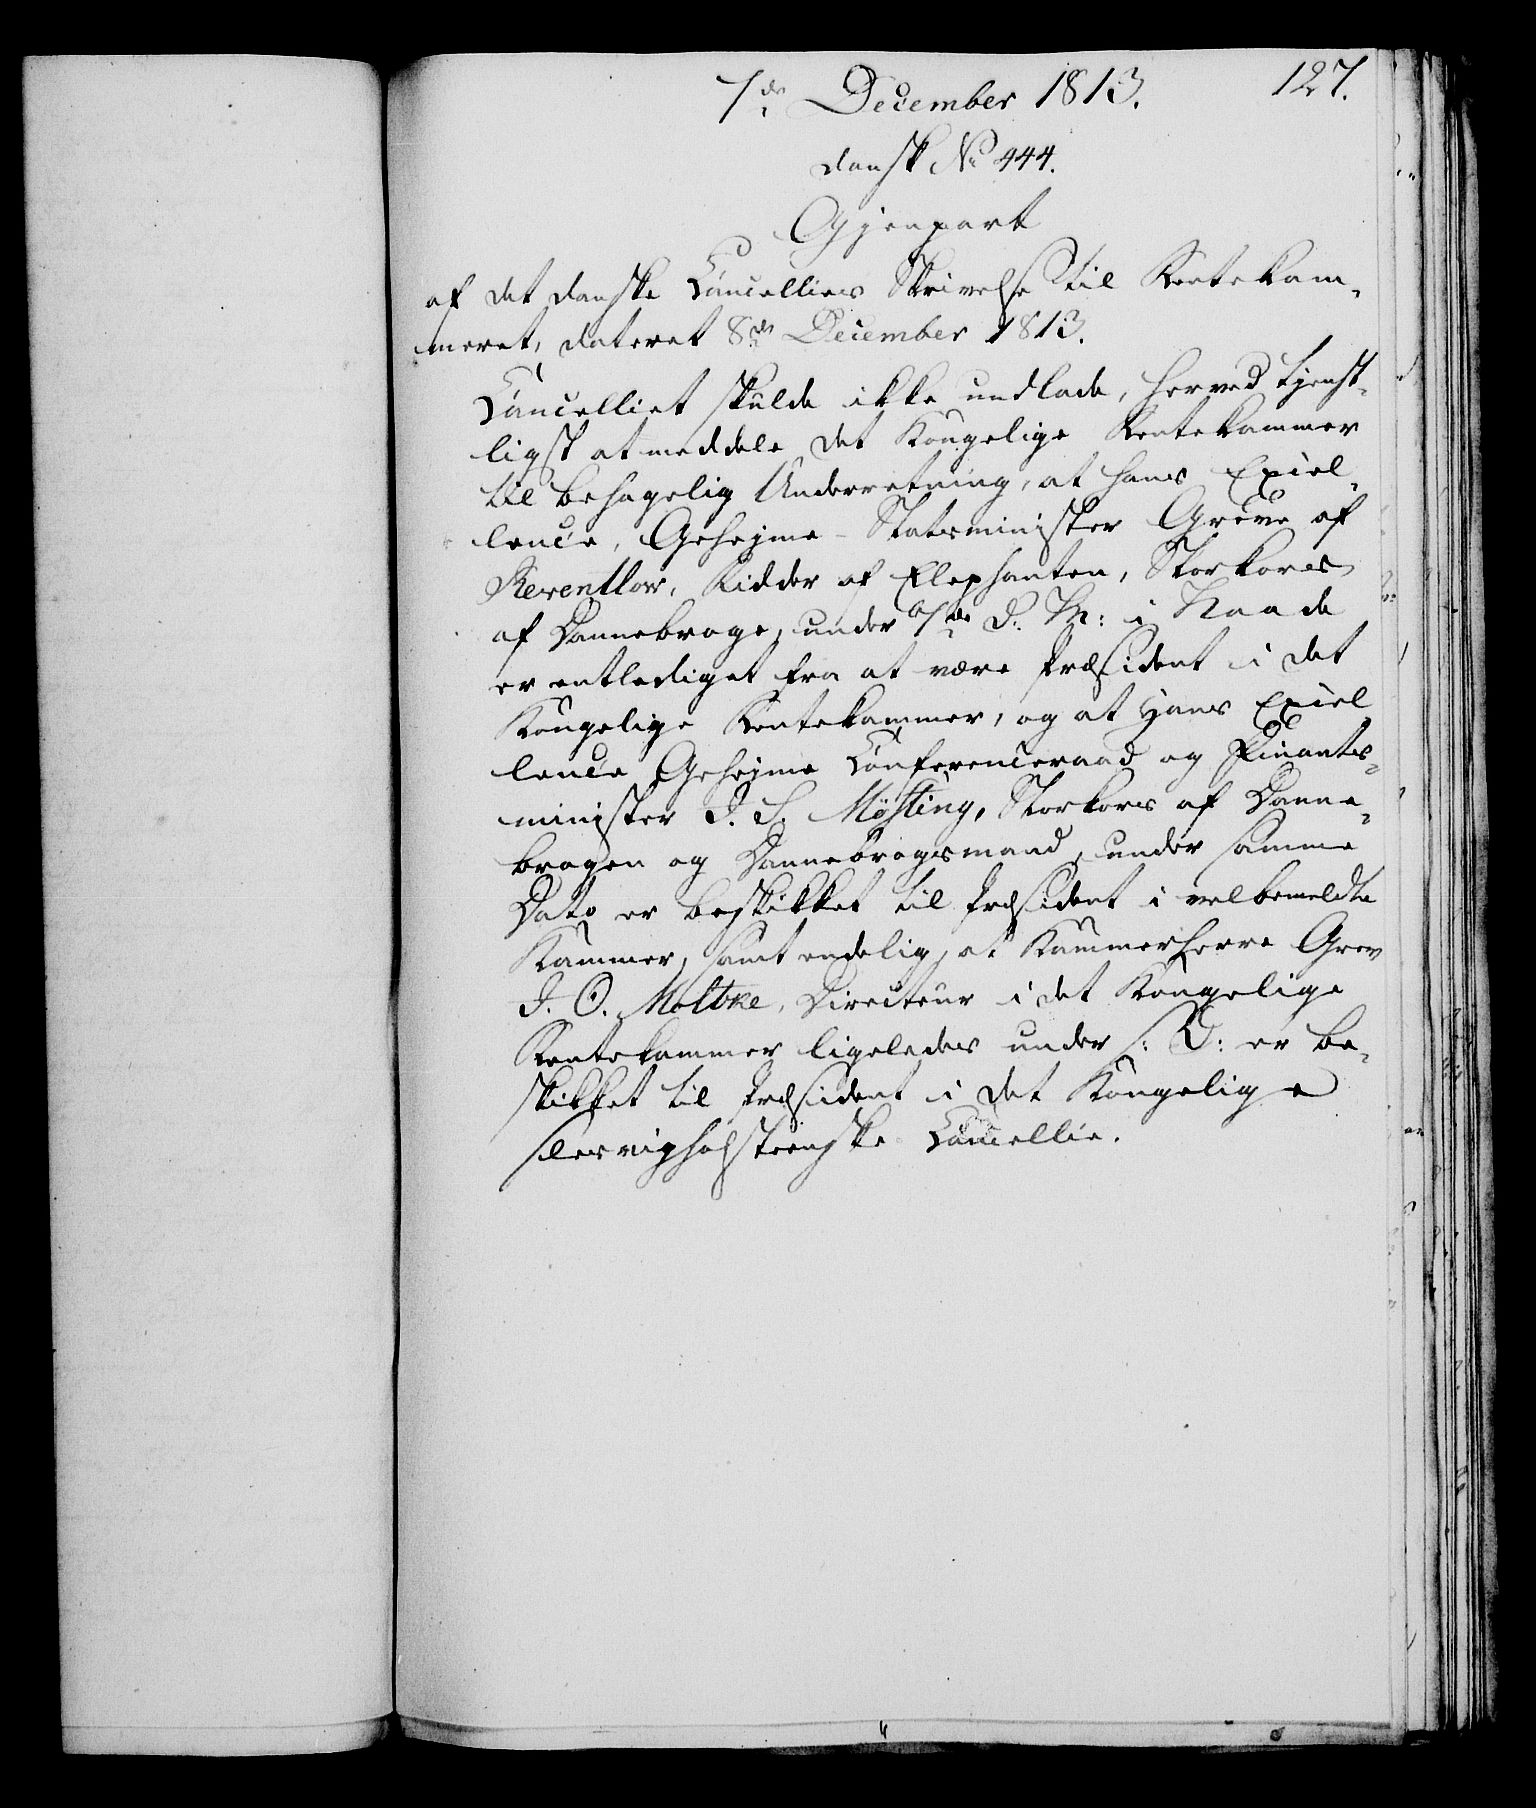 7de December 1813.
127.
dansk No 444.
Gjenpart
af det danske Cancellies Skrivelse til Rentekam-
meret, dateret 8de December 1813.
Cancelliet skulde ikke undlade, herved tjenst-
ligst at meddele det Kongelige Rentekammer
til behagelig Underretning, at hans Excel-
lence, Geheime-Statsminister Greve af
Reventlow, Ridder af Elephanten, Storkors
af Dannebroge, under 7de d. M: i Naade
er entlediget fra at være Præsident i det
Kongelige Rentekammer, og at Hans Excel
lence Geheime Conferenceraad og Finants-
minister J. S. Møsting, Storkors af Danne-
brogen og Dannebrogsmand, under samme
Dato er beskikket til Præsident i velbemeldte
Kammer, samt endelig, at Kammerherre Grev
J. O. Moltke, Directeur i det Kongelige
Rentekammer ligeledes under s: D: er be-
skikket til Præsident i det Kongelige
slesvigholsteenske Cancellie.